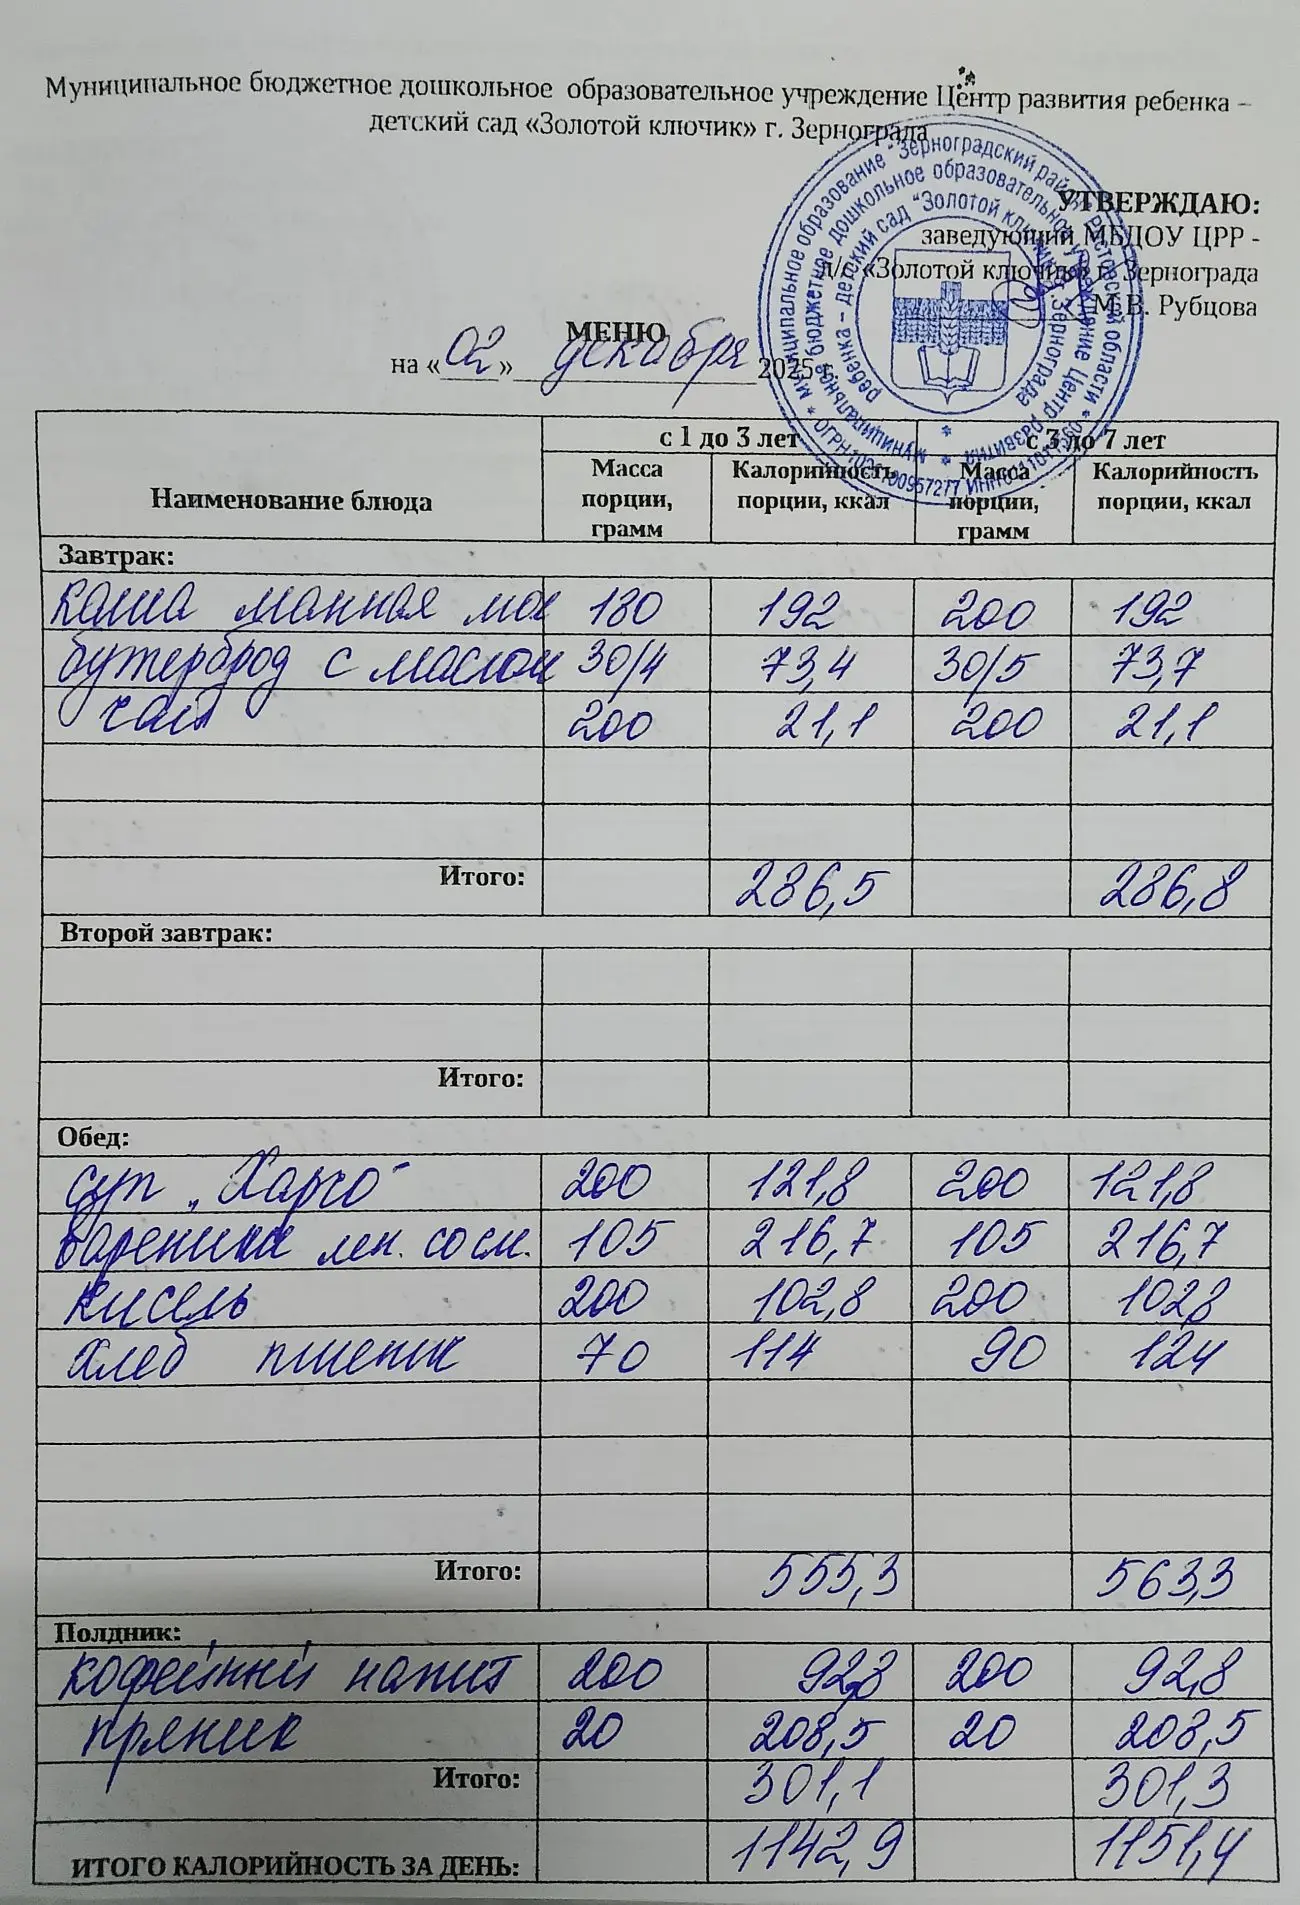 Муниципальное бюджетное дошкольное образовательное учреждение Центр развития ребенка –
детский сад «Золотой ключик» г. Зернограда
УТВЕРЖДАЮ:
заведующий МБДОУ ЦРР -
д/с «Золотой ключик» г. Зернограда
М.В. Рубцова
МЕНЮ
на «02» декабря 2025 г.
Наименование блюда с 1 до 3 лет с 3 до 7 лет
Масса порции, грамм Калорийность порции, ккал Масса порции, грамм Калорийность порции, ккал
Завтрак:
каша манная мол 180 192 200 192
бутерброд с маслом 30/4 73,4 30/5 73,7
чай 200 21,1 200 21,1
Итого: 286,5 286,8
Второй завтрак:
Итого:
Обед:
суп „Харчо" 200 121,8 200 121,8
вареники лен. со см. 105 216,7 105 216,7
кисель 200 102,8 200 102,8
хлеб пшенич 70 114 90 124
Итого: 555,3 563,3
Полдник:
кофейный напит 200 92,8 200 92,8
пряник 20 208,5 20 208,5
Итого: 301,1 301,3
ИТОГО КАЛОРИЙНОСТЬ ЗА ДЕНЬ: 1142,9 1151,4